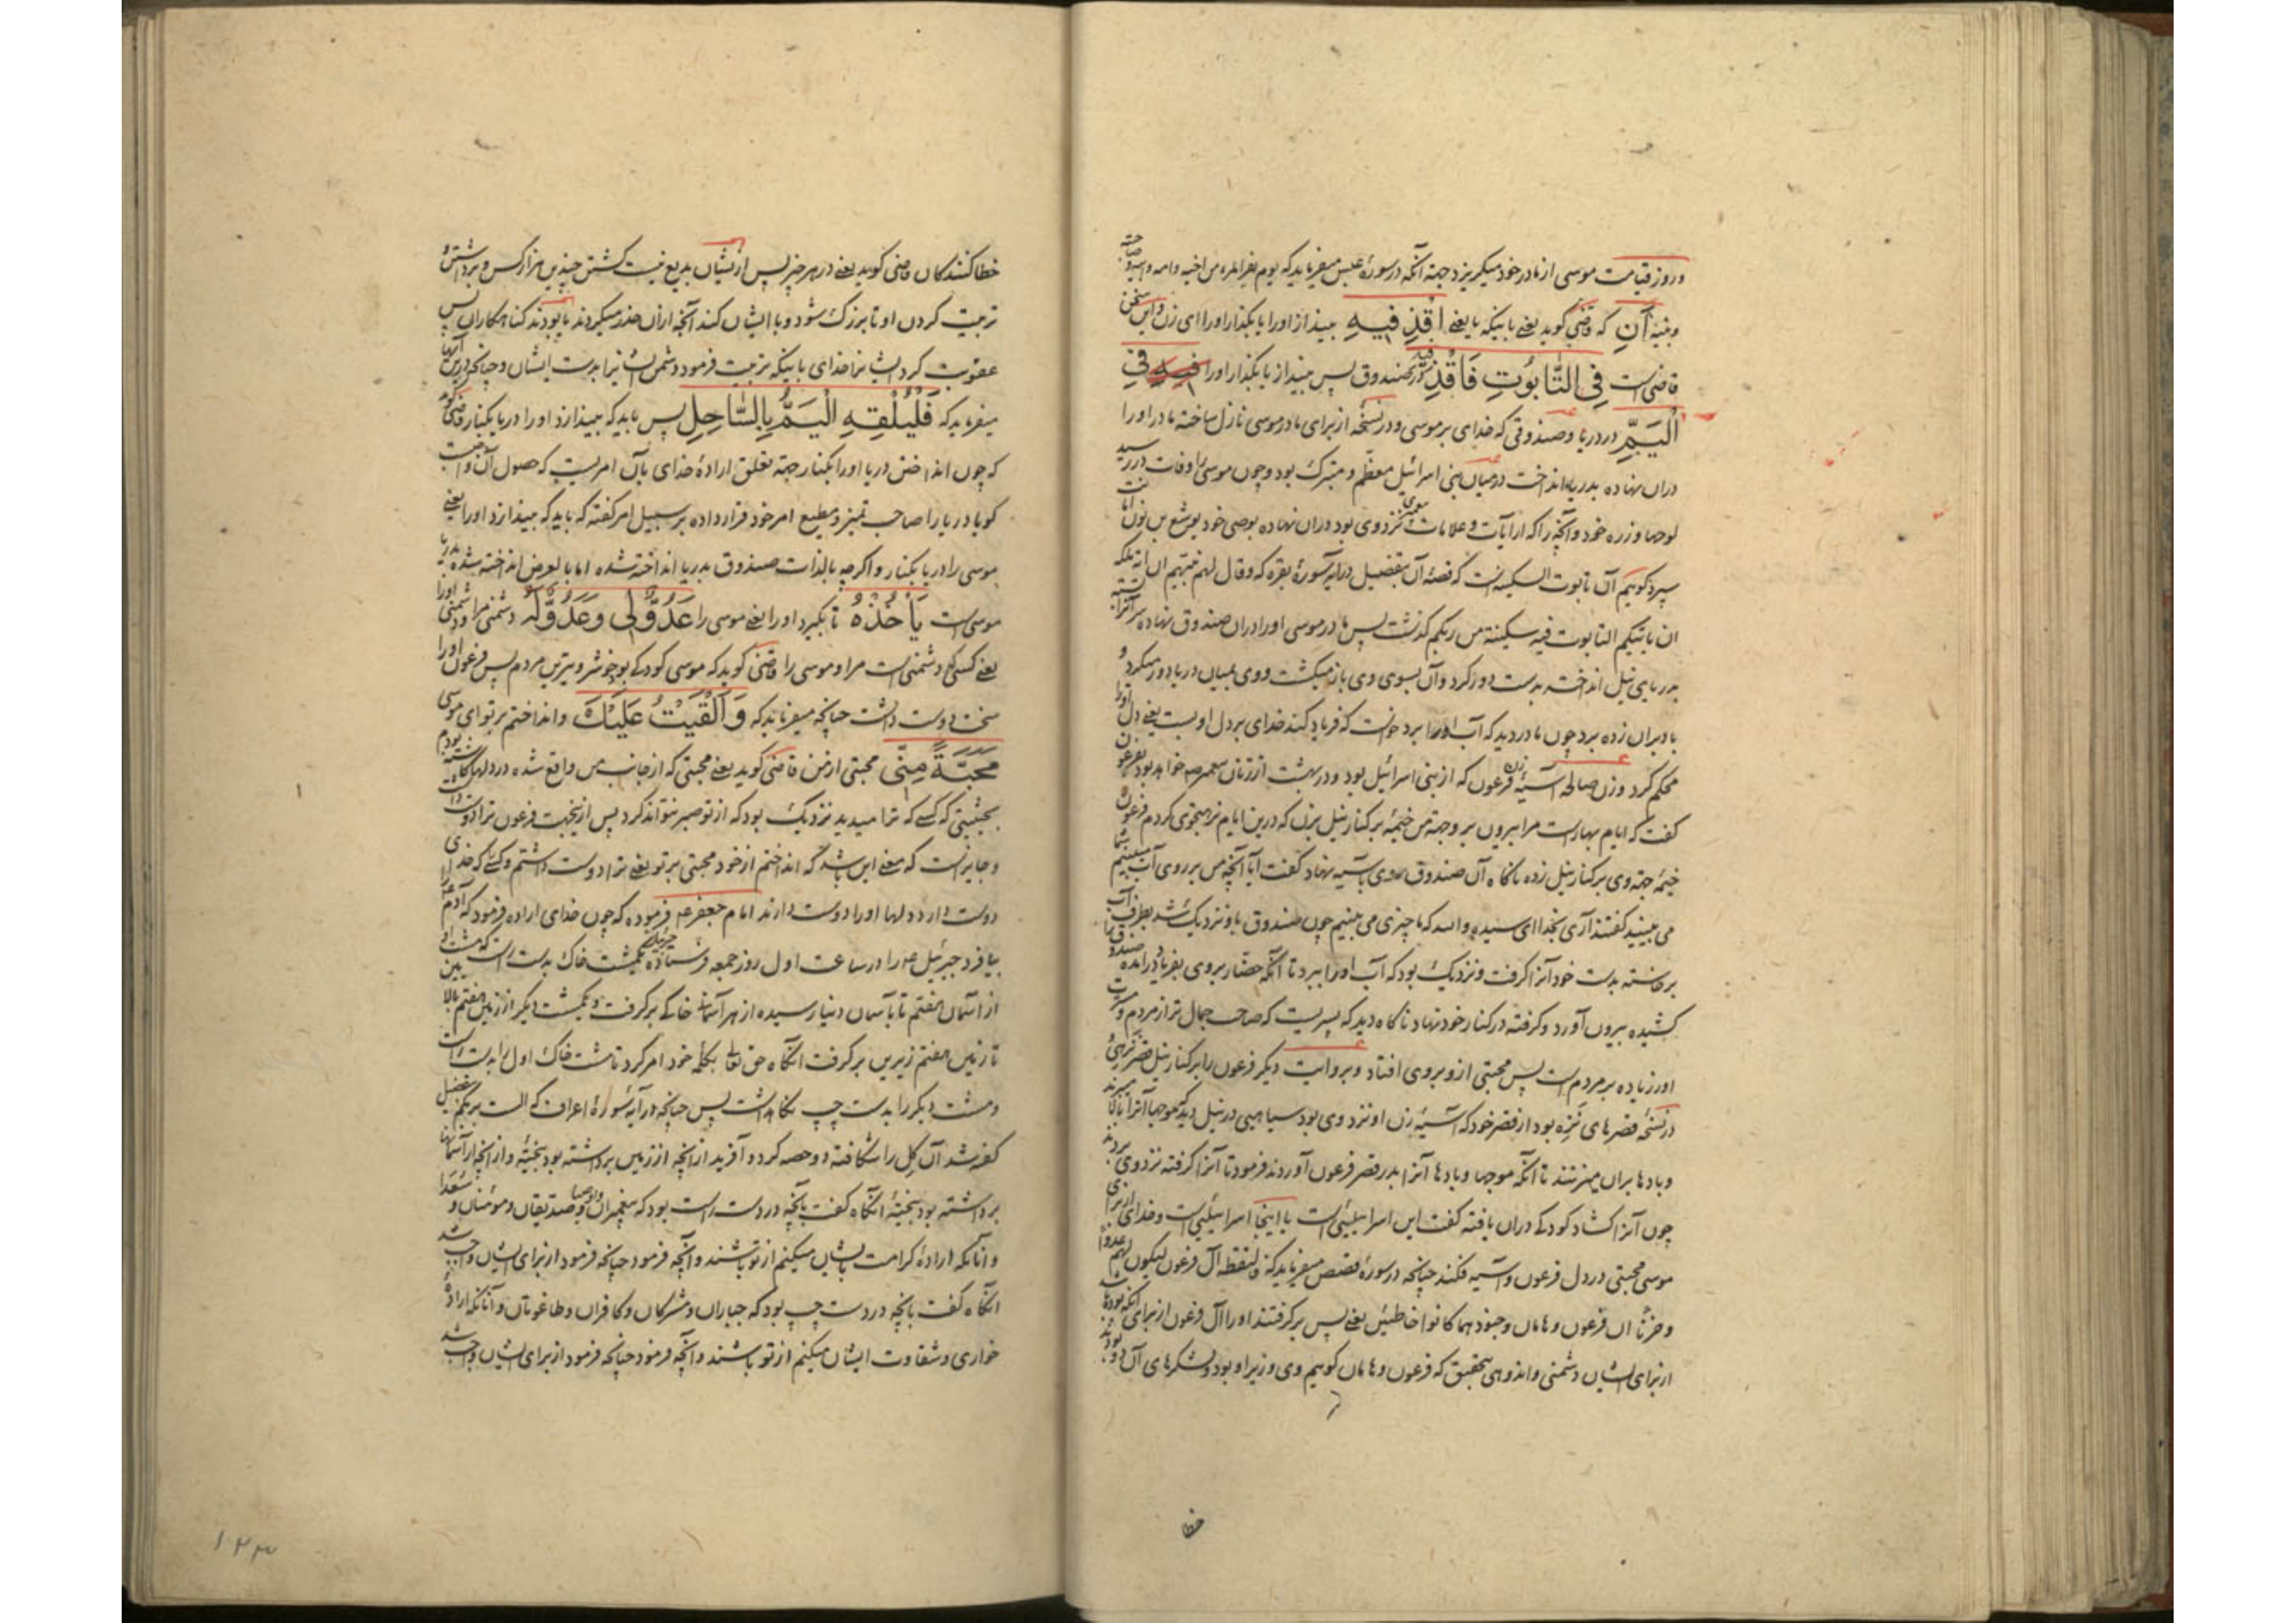 وروز قیامت موسی از مادر خود میگریزد جهة آنکه در سورهٔ عبس میفرماید که یوم یفر المرء من اخیه وامه وابیه وصاحبته
وبنیه أَنِ که قاضی گوید یعنی باینکه یا یعنی اقْذِفِیهِ بینداز اورا یا بگذار اورا ای زن واین سخن
قاضی است فِي التَّابُوتِ فَاقْذِفِیهِ در صندوق پس بینداز یا بگذار اورا فِي
الْیَمِّ در دریا وصندوقی که خدای بر موسی ودر نسخه از برای مادر موسی نازل ساخته مادر اورا
دران نهاده بدریا انداخت در میان بنی اسرائیل معظم ومتبرک بود وچون موسی را وفات در رسید
لوحها وزره خود وآنچه را که از آیات وعلامات پیغمبری نزد وی بود دران نهاده بوصی خود یوشع بن نون امانت
سپرد گوییم آن تابوت السکینه است که قصهٔ آن بتفصیل در آیهٔ سورهٔ بقره که وقال لهم نبیهم ان آیة ملکه
ان یاتیکم التابوت فیه سکینة من ربکم گذشت پس مادر موسی اورا دران صندوق نهاده سر آنرا بسته
بدریای نیل انداخته بدست دور کرد وآن بسوی وی باز میگشت ووی بمیان دریا دور میکرد و
باد بران زده برد چون مادر دید که آب اورا برد خواست که فریاد کند خدای بر دل او بست یعنی دل اورا
محکم کرد وزن صالحه آسیهٔ زن فرعون که از بنی اسرائیل بود ودر بهشت از زنان پیغمبر صم خواهد بود بفرعون
گفت که ایام بهار است مرا بیرون بر وجهة من خیمهٔ بر کنار نیل بزن که درین ایام نزهجوی کردم فرعون
خیمهٔ جهة وی بر کنار نیل زده ناگاه آن صندوق روی بآسیه نهاد گفت آیا آنچه من بر روی آب میبینم شما
می بینید گفتند آری بخدا ای سیده والله که ما چیزی می بینیم چون صندوق باو نزدیک شد بطرف آب
برخاسته بدست خود آنرا گرفت ونزدیک بود که آب اورا ببرد تا آنکه حضار بروی بفریاد در آمده صندوق را
کشیده بیرون آورد وگرفته در کنار خود نهاد ناگاه دید که پسریست که صاحب جمال تر از مردم ومسرت
آور زیاده بر مردم است پس محبتی ازو بروی افتاد وبروایت دیگر فرعون را بر کنار نیل قصر نزهی
در نسخهٔ قصرهای نزه بود از قصر خود که آسیهٔ زن او نزد وی بود سیاهیی در نیل دید که موجها آنرا بالا میبرند
وبادها بران میزنند تا آنکه موجها وبادها آنرا بدر قصر فرعون آوردند فرمود تا آنرا گرفته نزد وی بردند
چون آنرا گشاد کودکی دران یافته گفت این اسرائیلیئی است یا اینجا اسرائیلیی است وخدای از برای
موسی محبتی در دل فرعون وآسیه فکند چنانچه در سورهٔ قصص میفرماید که فالتقطه آل فرعون لیکون لهم عدوا
وحزنا ان فرعون وهامان وجنودهما کانوا خاطئین یعنی پس برگرفتند اورا آل فرعون از برای آنکه بوده باشد
از برای ایشان دشمنی واندوهی بتحقیق که فرعون وهامان گوییم وی وزیر او بود ولشکرهای آن دو بودند
خطا
خطاکنندگان قاضی گوید یعنی در هر چیز پس از ایشان بدیع نیست کشتن چندین هزار کس وبرداشتن و
تربیت کردن او تا بزرگ شود وبا ایشان کند آنچه ازان حذر میکردند یا بودند گناهکاران پس
عقوبت کرد ایشانرا خدای باینکه تربیت فرمود دشمن ایشانرا بدست ایشان وچنانچه درین آیها
میفرماید که فَلْیُلْقِهِ الْیَمُّ بِالسَّاحِلِ پس باید که بیندازد اورا دریا بکنار قاضی گوید
که چون انداختن دریا اورا بکنار جهة تعلق ارادهٔ خدای بآن امریست که حصول آن واجبست
گویا دریا را صاحب تمیز ومطیع امر خود قرار داده بر سبیل امر گفته که باید که بیندازد اورا یعنی
موسی را دریا بکنار واگرچه بالذات صندوق بدریا انداخته شده اما بالعرض انداخته شده بدریا
موسی است یَأْخُذْهُ تا بگیرد اورا یعنی موسی را عَدُوٌّ لِي وَعَدُوٌّ لَهُ دشمنی مرا ودشمنی اورا
یعنی کسی که دشمنی است مرا وموسی را قاضی گوید که موسی کودکی بود خوشروترین مردم پس فرعون اورا
سخت دوست داشت چنانچه میفرماید که وَأَلْقَیْتُ عَلَیْكَ وانداختم بر تو ای موسی
مَحَبَّةً مِنِّي محبتی از من قاضی گوید یعنی محبتی که از جانب من واقع شده در دلها کاشته بودم
بحیثیتی که کسی که ترا میدید نزدیک بود که از تو صبر نتواند کرد پس ازینجهت فرعون ترا دوست داشت
وجایز است که معنی این باشد که انداختم از خود محبتی بر تو یعنی ترا دوست داشتم وکسی که خدای اورا
دوست دارد دلها اورا دوست دارند امام جعفر عم فرموده که چون خدای اراده فرمود که آدم عم را
بیافرد جبرئیل عم را در ساعت اول روز جمعه فرستاده یکمشت خاک بدست راست که مشت او بین
از آسمان هفتم تا بآسمان دنیا رسیده از هر آسمان خاکی برگرفت ویکمشت دیگر از زمین هفتم بالا
تا زمین هفتم زیرین برگرفت انگاه حق تعالی بکلمه خود امر کرد تا مشت خاک اول را بدست راست
ومشت دیگر را بدست چپ نگاهداشت پس چنانچه در آیهٔ سورهٔ اعراف که الست بربکم بتفصیل
گفته شد آن گل را شکافته دو حصه کرد وآفرید از آنچه از زمین برداشته بود بجنبهٔ واز آنچه از آسمانها
برداشته بود بجنبهٔ انگاه گفت بآنچه در دست راست بود که پیغمبران واوصیا وصدیقان ومومنان وسعدا
وآنانکه ارادهٔ کرامت بایشان میکنم از تو باشند وآنچه فرمود چنانچه فرمود از برای ایشان واجب شد
انگاه گفت بآنچه در دست چپ بود که جباران ومشرکان وکافران وطاغوتان وآنانکه ارادهٔ
خواری وشقاوت ایشان میکنم از تو باشند وآنچه فرمود چنانچه فرمود از برای ایشان واجب شد
۱۲۳